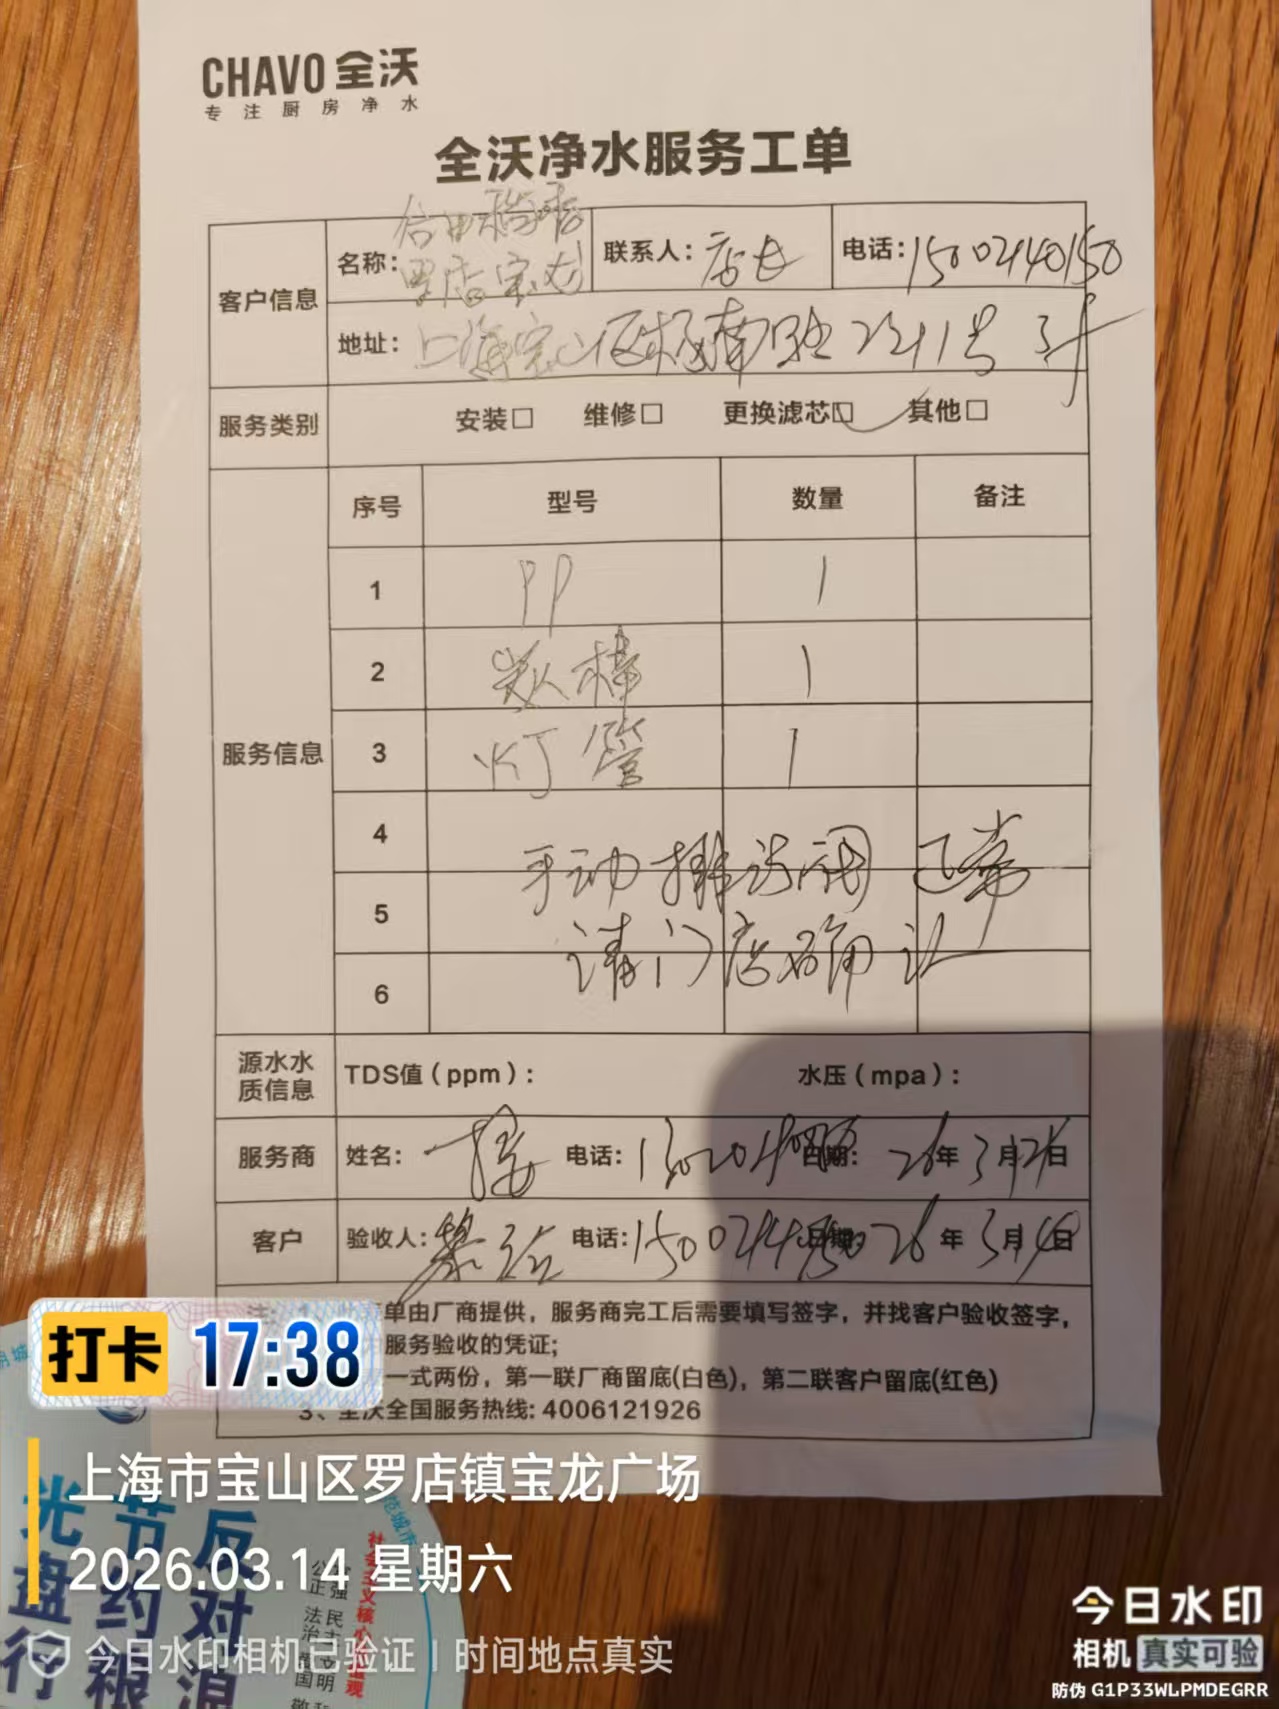 CHAVO 全沃
专注厨房净水
全沃净水服务工单
客户信息
名称:
罗店宝龙
联系人: 店长
电话: 15002440150
地址: 上海宝山区杨南路2211号 3F
服务类别
安装□ 维修□ 更换滤芯□ 其他□
服务信息
序号 型号 数量 备注
1 PP 1
2 炭棒 1
3 灯管 1
4
手动排污阀 正常
5
请门店确认
6
源水水质信息
TDS值(ppm): 水压(mpa):
服务商 姓名: 电话: 日期: 26年3月14日
客户 验收人: 电话: 15002440150 日期: 26年3月14日
单由厂商提供，服务商完工后需要填写签字，并找客户验收签字，
服务验收的凭证;
一式两份，第一联厂商留底(白色)，第二联客户留底(红色)
3、全沃全国服务热线: 4006121926
打卡 17:38
上海市宝山区罗店镇宝龙广场
2026.03.14 星期六
今日水印相机已验证 | 时间地点真实
今日水印
相机 真实可验
防伪 G1P33WLPMDEGRR